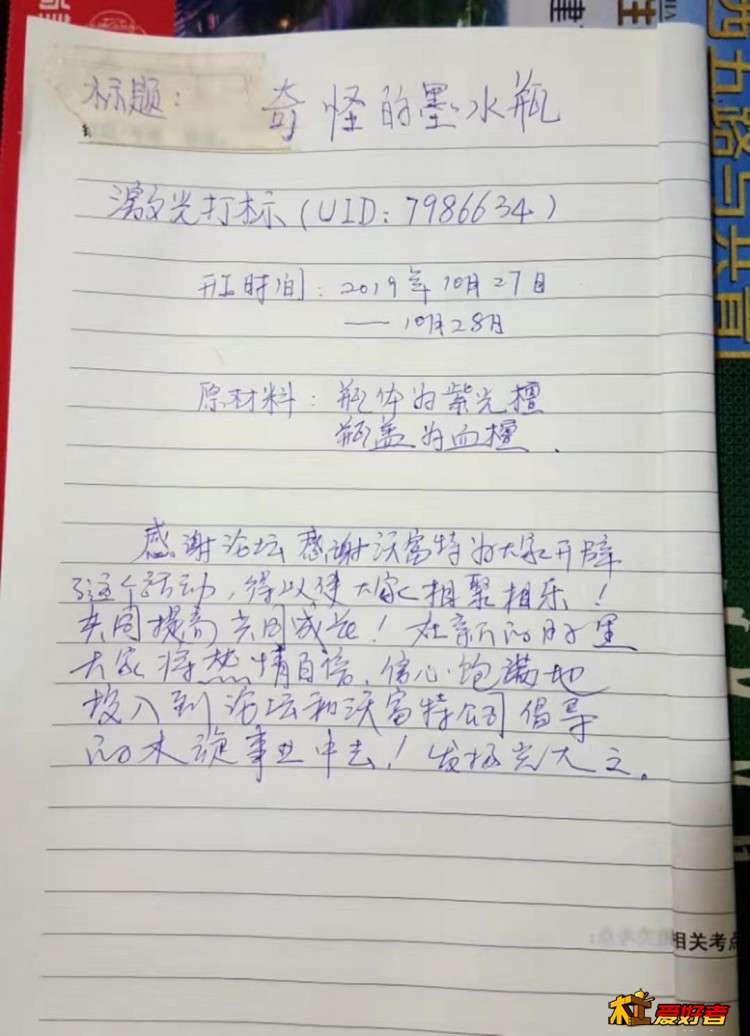 标题：奇怪的墨水瓶
激光打标（UID：7986634）
开工时间：2019年10月27日
——10月28日
原材料：瓶体为紫光檀
瓶盖为血檀．
感谢论坛感谢沃富特为大家开辟
这个活动，得以使大家相聚相乐！
共同提高共同成长！在新的月里
大家将热情百倍，信心饱满地
投入到论坛和沃富特公司倡导
的木旋事业中去！发扬光大之．
西五路与共青
相关考点
木工爱好者